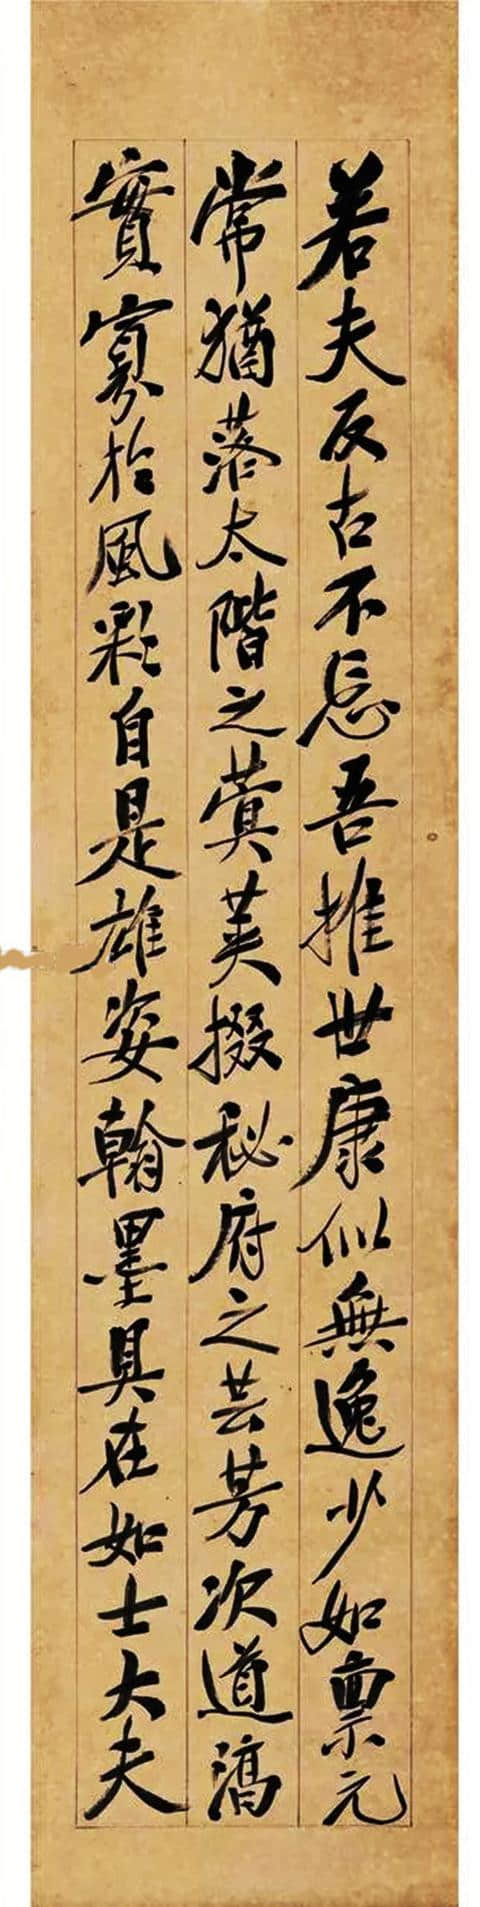 若夫反古不忘吾推世康似無逸少如稟元
常猶落太階之蓂荚掇秘府之芸芳次道滈
實寡於風彩自是雄姿翰墨具在如士大夫